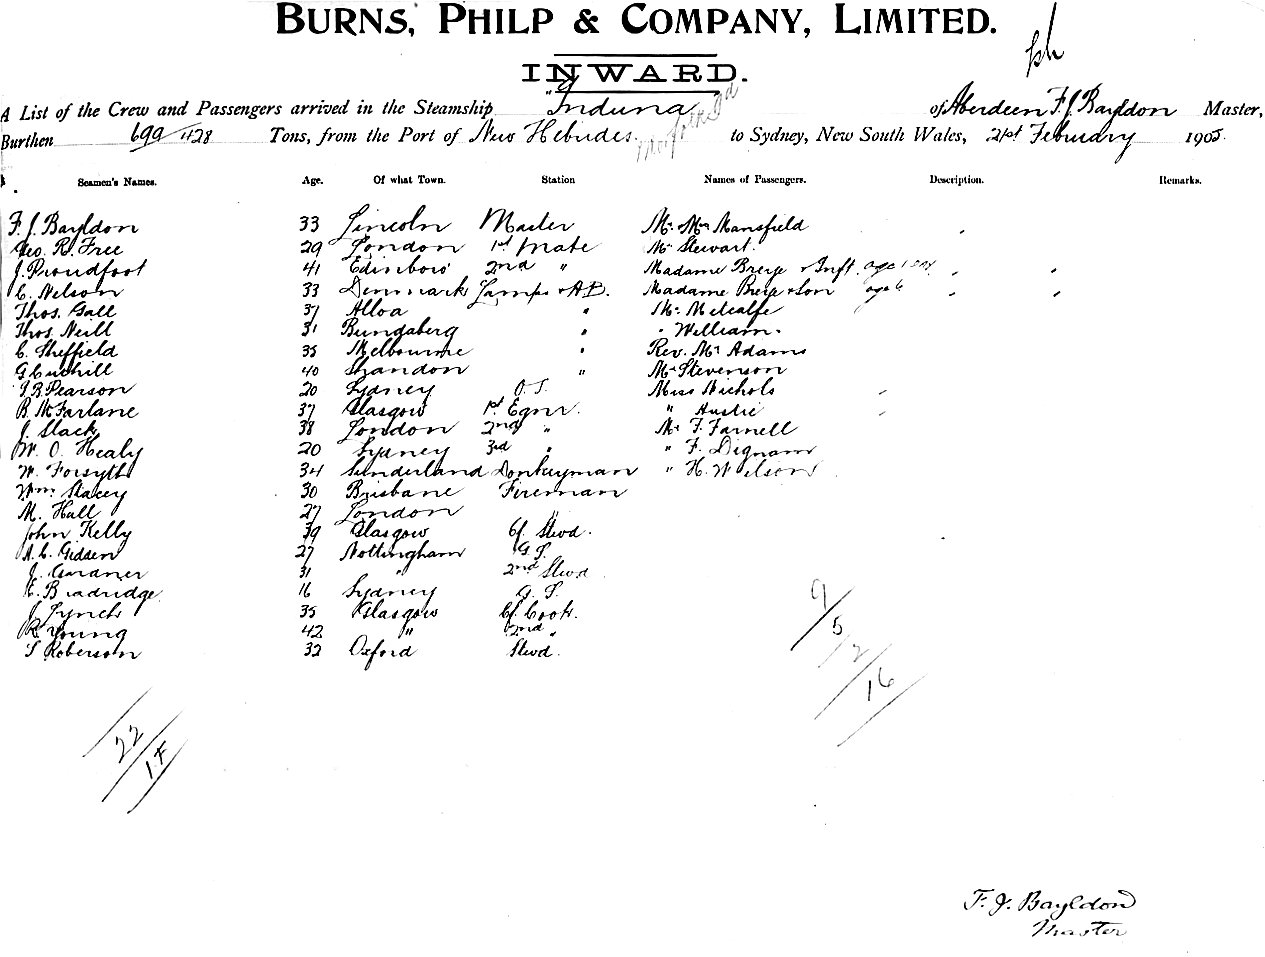 BURNS, PHILP & COMPANY, LIMITED.
INWARD.
A List of the Crew and Passengers arrived in the Steamship "Induna" of Aberdeen F. J. Bayldon Master,
Burthen 699/428 Tons, from the Port of New Hebrides. Norfolk Id to Sydney, New South Wales, 21st February 1905
Seamen's Names. Age. Of what Town. Station Names of Passengers. Description. Remarks.
F. J. Bayldon 33 Lincoln Master Mr. Mrs Mansfield
Geo. R. Free 29 London 1st Mate Mr Stewart.
J. Proudfoot 41 Edinboro' 2nd " Madame Breye & Inft. age 1
C. Nelson 33 Denmark Lamps & A.B. Madame Breye & Son age 6
Thos. Gall 37 Alloa " Mr. Metcalfe
Thos. Neill 31 Bundaberg " " William
C. Sheffield 35 Melbourne " Rev. Mr Adams
G 40 Shandon " Mr Stevenson
J. B. Pearson 20 Sydney O.S. Miss Nichols
R. McFarlane 37 Glasgow 1st Egnr. "
J. Slack 38 London 2nd " Mr. F. Farnell
W. O. Healy 20 Sydney 3rd " " F. Dignam
W. Forsyth 34 Sunderland Donkeyman " H. Wilson
Wm. Stacey 30 Brisbane Fireman
M. Hall 27 London "
John Kelly 39 Glasgow Cf. Stwd.
A. C. Gidden 27 Nottingham G. S.
J. Gardner 31 " 2nd Stwd
E. Bradridge 16 Sydney G. S.
J. Lynch 35 Glasgow Cf. Cook.
R. Young 42 " 2nd "
S Roberson 32 Oxford Stwd.
9/5/2/16
22/14
F. J. Bayldon
Master